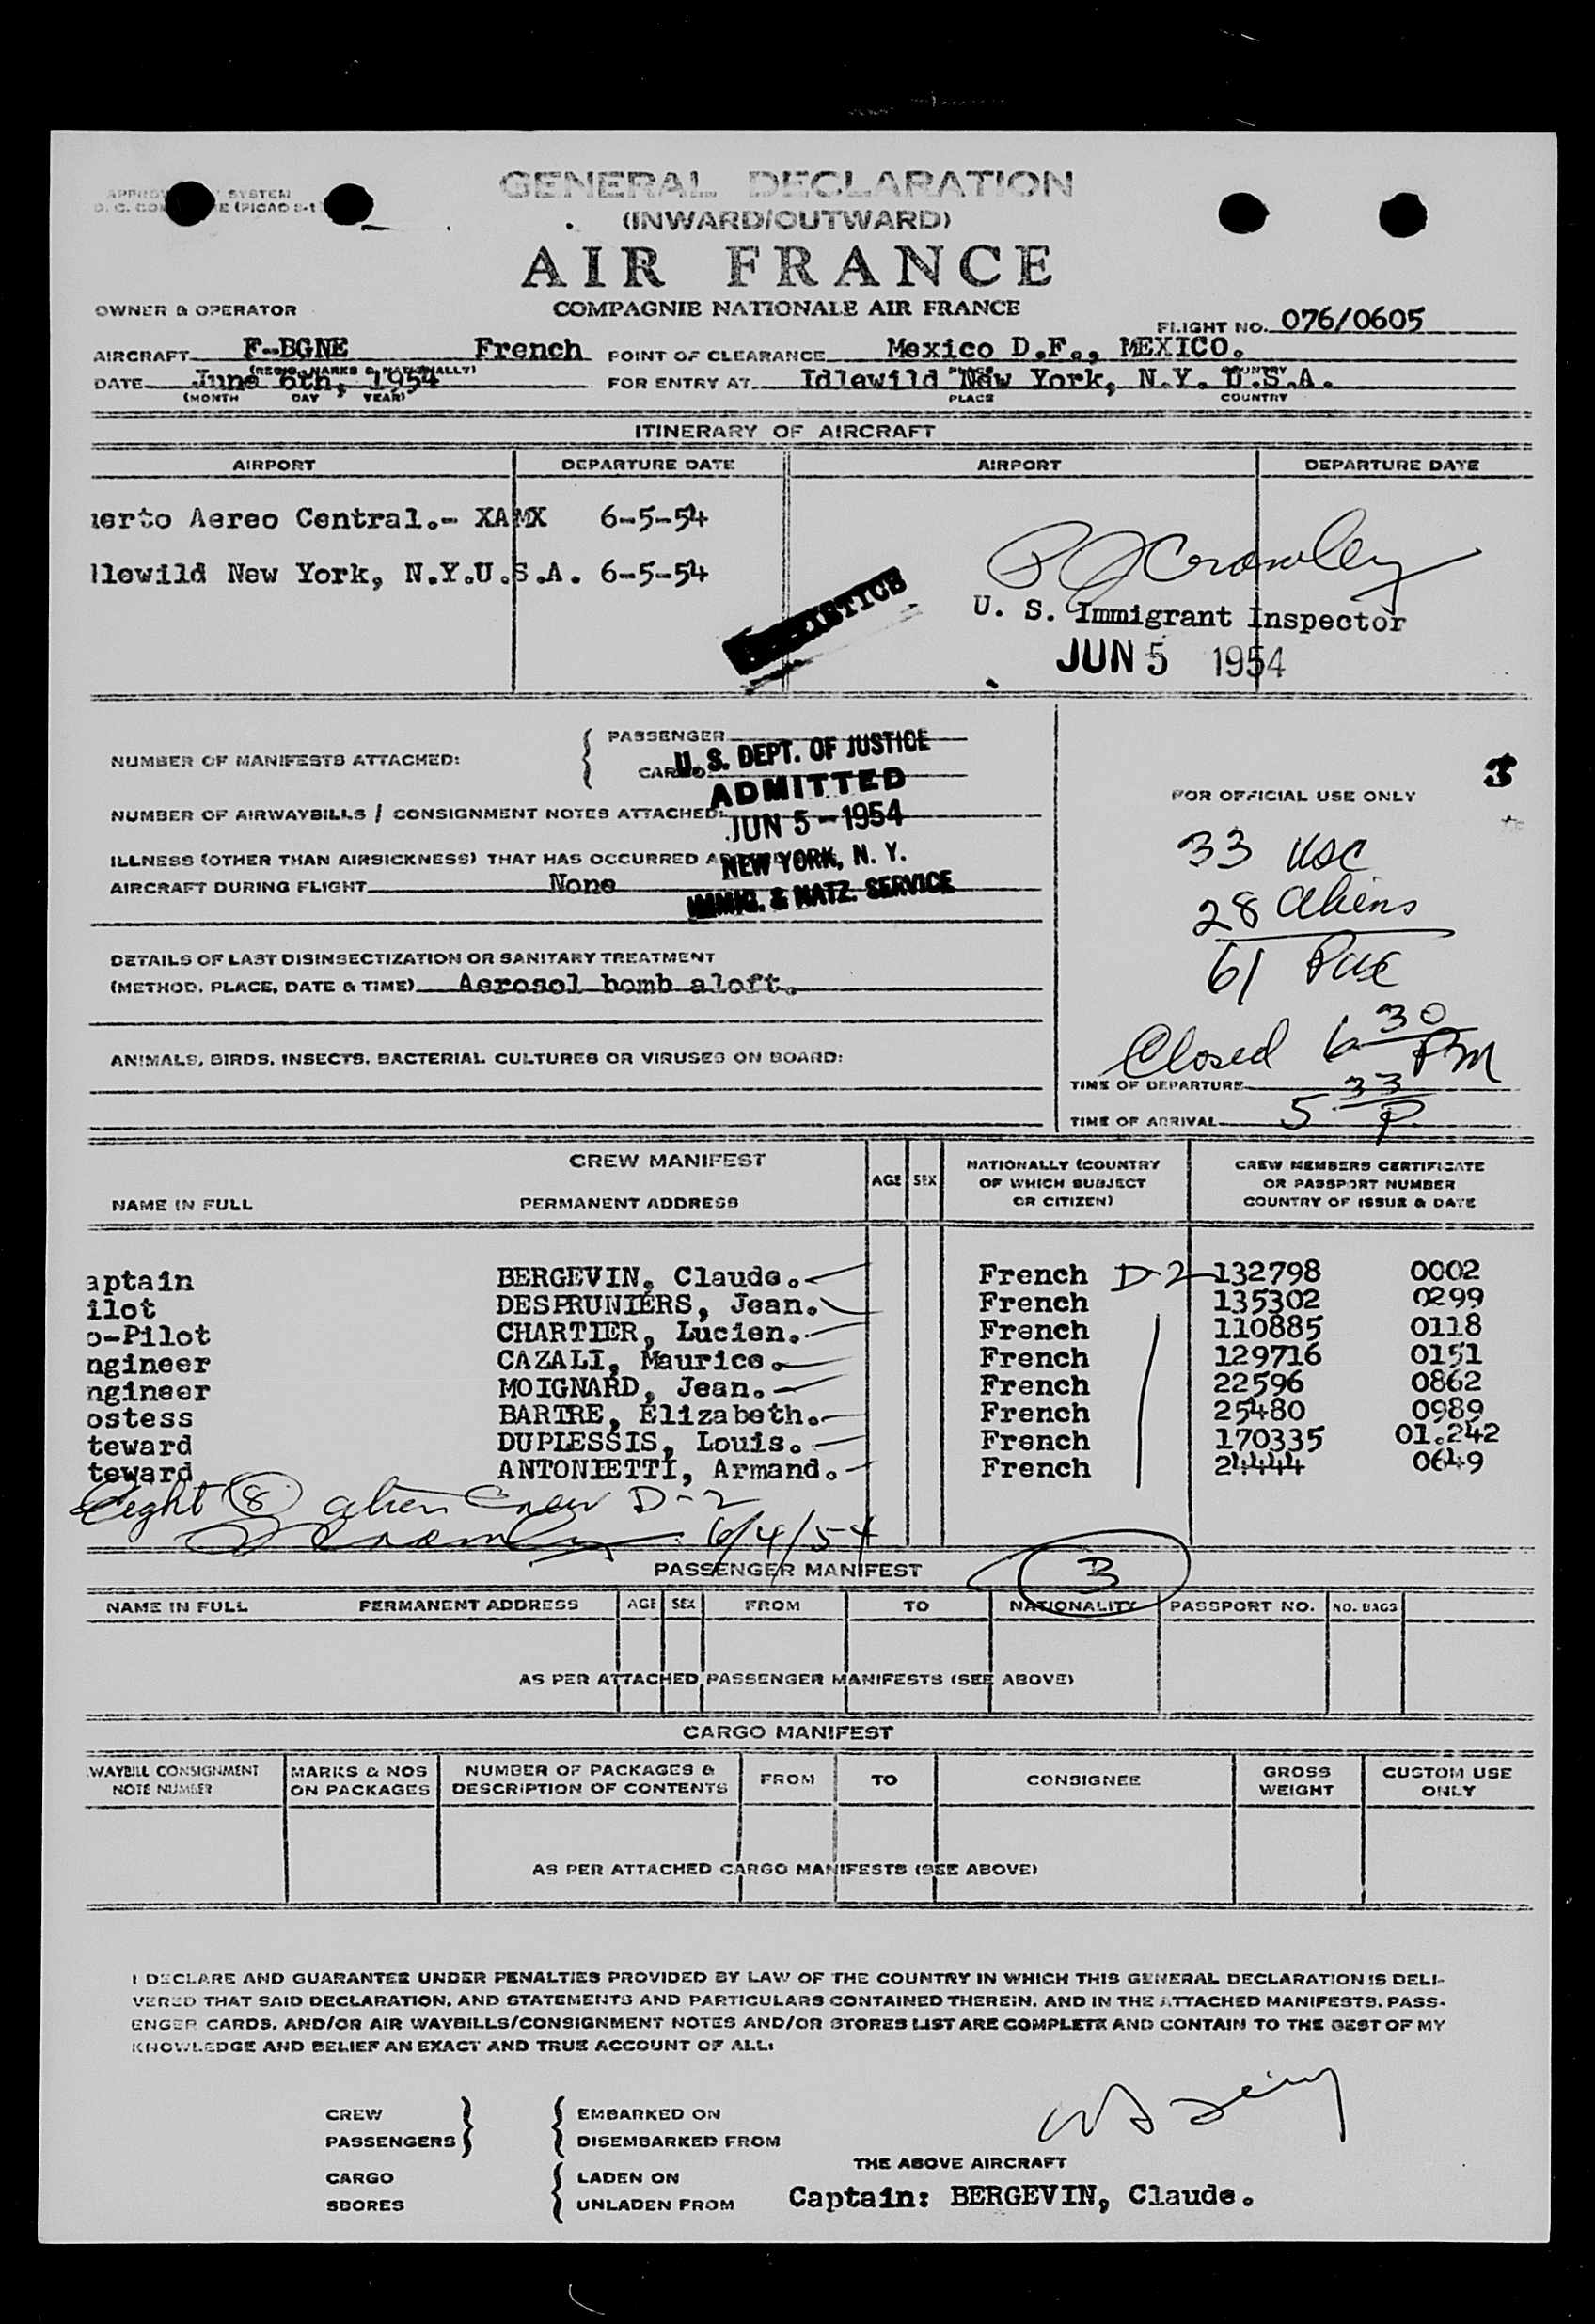 GENERAL DECLARATION
(INWARD/OUTWARD)
AIR FRANCE
COMPAGNIE NATIONALE AIR FRANCE
OWNER & OPERATOR
FLIGHT NO. 076/0605
AIRCRAFT F-BGNE French POINT OF CLEARANCE Mexico D.F., MEXICO.
DATE June 6th, 1954 FOR ENTRY AT Idlewild New York, N.Y. U.S.A.
(MONTH DAY YEAR) PLACE COUNTRY
ITINERARY OF AIRCRAFT
AIRPORT DEPARTURE DATE AIRPORT DEPARTURE DATE
uerto Aereo Central.- XAMX 6-5-54
dlewild New York, N.Y.U.S.A. 6-5-54
P J Crowley
U. S. Immigrant Inspector
JUN 5 1954
NUMBER OF MANIFESTS ATTACHED: PASSENGER
CARGO
U. S. DEPT. OF JUSTICE
ADMITTED
JUN 5 - 1954
NEW YORK, N. Y.
IMMIG. & NATZ. SERVICE
NUMBER OF AIRWAYBILLS / CONSIGNMENT NOTES ATTACHED:
ILLNESS (OTHER THAN AIRSICKNESS) THAT HAS OCCURRED
AIRCRAFT DURING FLIGHT None
DETAILS OF LAST DISINSECTIZATION OR SANITARY TREATMENT
(METHOD, PLACE, DATE & TIME) Aerosol bomb aloft.
ANIMALS, BIRDS, INSECTS, BACTERIAL CULTURES OR VIRUSES ON BOARD:
FOR OFFICIAL USE ONLY
33 USC
28 aliens
61 Pax
Closed 6 30 PM
TIME OF DEPARTURE
TIME OF ARRIVAL 5 33 P
CREW MANIFEST
NAME IN FULL PERMANENT ADDRESS AGE SEX NATIONALLY (COUNTRY OF WHICH SUBJECT OR CITIZEN) CREW MEMBERS CERTIFICATE OR PASSPORT NUMBER COUNTRY OF ISSUE & DATE
aptain BERGEVIN, Claude. French D-2 132798 0002
ilot DESPRUNIERS, Jean. French 135302 0299
o-Pilot CHARTIER, Lucien. French 110885 0118
ngineer CAZALI, Maurice. French 129716 0151
ngineer MOIGNARD, Jean. French 22596 0862
ostess BARTRE, Elizabeth. French 25480 0989
teward DUPLESSIS, Louis. French 170335 01.242
teward ANTONIETTI, Armand. French 24444 0649
Eight (8) alien Crew D-2
Crowley 6/4/54
PASSENGER MANIFEST 3
NAME IN FULL PERMANENT ADDRESS AGE SEX FROM TO NATIONALITY PASSPORT NO. NO. BAGS
AS PER ATTACHED PASSENGER MANIFESTS (SEE ABOVE)
CARGO MANIFEST
WAYBILL CONSIGNMENT NOTE NUMBER MARKS & NOS ON PACKAGES NUMBER OF PACKAGES & DESCRIPTION OF CONTENTS FROM TO CONSIGNEE GROSS WEIGHT CUSTOM USE ONLY
AS PER ATTACHED CARGO MANIFESTS (SEE ABOVE)
I DECLARE AND GUARANTEE UNDER PENALTIES PROVIDED BY LAW OF THE COUNTRY IN WHICH THIS GENERAL DECLARATION IS DELI-
VERED THAT SAID DECLARATION, AND STATEMENTS AND PARTICULARS CONTAINED THEREIN, AND IN THE ATTACHED MANIFESTS, PASS-
ENGER CARDS, AND/OR AIR WAYBILLS/CONSIGNMENT NOTES AND/OR STORES LIST ARE COMPLETE AND CONTAIN TO THE BEST OF MY
KNOWLEDGE AND BELIEF AN EXACT AND TRUE ACCOUNT OF ALL:
CREW EMBARKED ON
PASSENGERS DISEMBARKED FROM
THE ABOVE AIRCRAFT
CARGO LADEN ON
SBORES UNLADEN FROM
Captain: BERGEVIN, Claude.